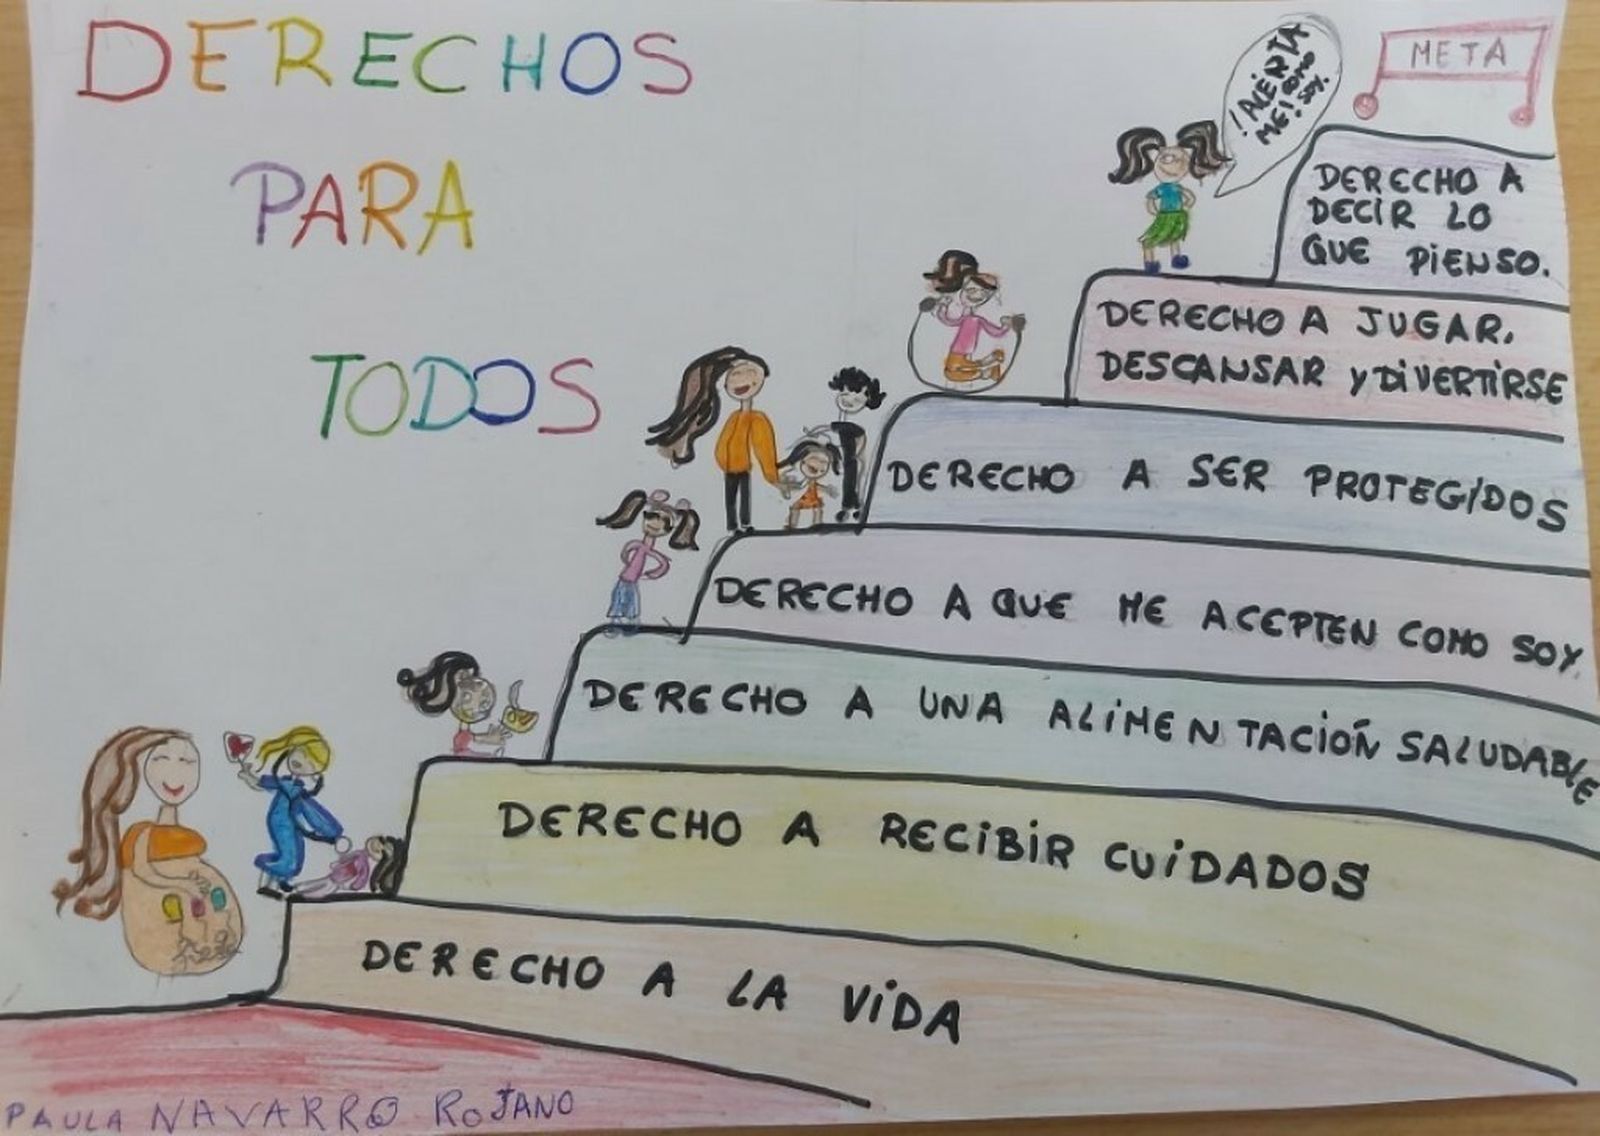 DERECHOS
PARA
TODOS
¡ACÉPTA
ME! COMO
SOY
META
DERECHO A
DECIR LO
QUE PIENSO.
DERECHO A JUGAR,
DESCANSAR Y DIVERTIRSE
DERECHO A SER PROTEGIDOS
DERECHO A QUE ME ACEPTEN COMO SOY.
DERECHO A UNA ALIMENTACIÓN SALUDABLE
DERECHO A RECIBIR CUIDADOS
DERECHO A LA VIDA
PAULA NAVARRO ROJANO